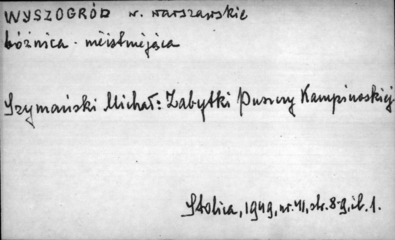 WYSZOGRÓD w. warszawskie
bóżnica - nieistniejąca
Szymański Michał: Zabytki Puszczy Kampinoskiej
Stolica, 1949, nr. 41, str. 8-9, il. 1.